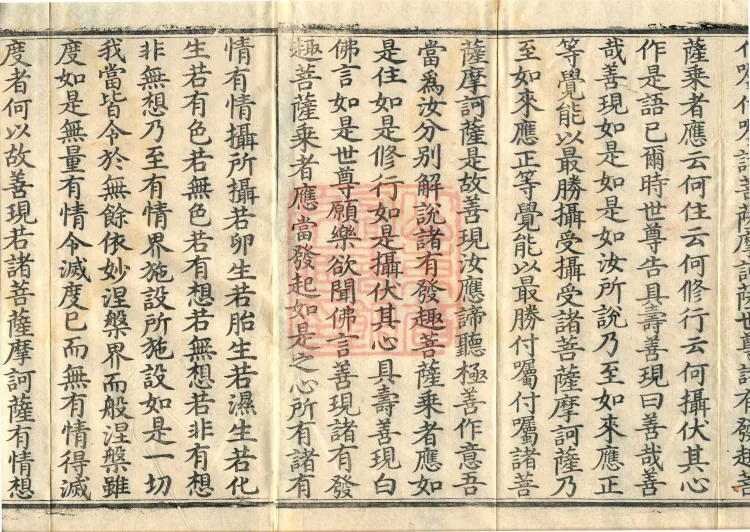 薩乘者應云何住云何修行云何攝伏其心
作是語已爾時世尊告具壽善現曰善哉善
哉善現如是如是如汝所說乃至如來應正
等覺能以最勝攝受攝受諸菩薩摩訶薩乃
至如來應正等覺能以最勝付囑付囑諸菩
薩摩訶薩是故善現汝應諦聽極善作意吾
當爲汝分別解說諸有發趣菩薩乘者應如
是住如是修行如是攝伏其心具壽善現白
佛言如是世尊願樂欲聞佛言善現諸有發
趣菩薩乘者應當發起如是之心所有諸有
情有情攝所攝若卵生若胎生若濕生若化
生若有色若無色若有想若無想若非有想
非無想乃至有情界施設所施設如是一切
我當皆令於無餘依妙涅槃界而般涅槃雖
度如是無量有情令滅度已而無有情得滅
度者何以故善現若諸菩薩摩訶薩有情想